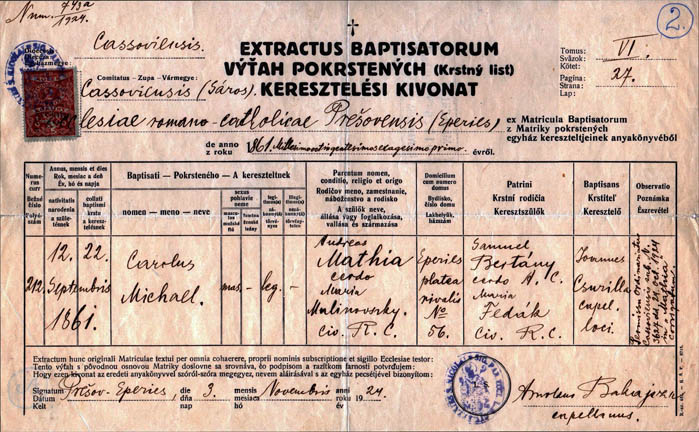 Nnum. 743a/1924.
2.
Cassoviensis.
EXTRACTUS BAPTISATORUM
VÝŤAH POKRSTENÝCH (Krstný list)
KERESZTELÉSI KIVONAT
Tomus:
Svázok:
Kötet:
VI.
Pagina:
Strana:
Lap:
27.
Comitatus - Zupa - Vármegye:
Cassoviensis (Sáros).
Ecclesiae romano-catholicae Prešovensis (Eperies)
ex Matricula Baptisatorum
z Matriky pokrstených
egyház kereszteltjeinek anyakönyvéből
de anno
z roku
1861. Millesimo octingentesimo sexagesimo primo.
évről.
Numerus curr
Bežné číslo
Folyó szám
Annus, mensis et dies
Rok, mesiac a deň
Év, hó és napja
nativitatis
narodenia
a születésnek
collati baptismi
krstu
a keresztelésnek
Baptisati — Pokrsteného — A kereszteltnek
nomen - meno - neve
sexus
pohlavie
neme
Parentum nomen, conditio, religio et origo
Rodičov meno, zamestnanie, náboženstvo a rodisko
A szülők neve, állása vagy foglalkozása, vallása és származása
Domicilium cum numero domus
Bydlisko, číslo domu
Lakhelyük, házszám
Patrini
Krstní rodičia
Keresztszülők
Baptisans
Krstiteľ
Keresztelő
Observatio
Poznámka
Észrevétel
212.
12. 22.
Septembris
1861.
Carolus
Michael.
mas. – leg. –
Andreas
Mathia
Maria
Malinovsky.
civ. R. C.
Eperies
platea
rivalis
No
56.
Samuel
Bertány
A. C.
Maria
Fedák
civ. R. C.
Joannes
Csurilla
capel.
loci.
Extractum hunc originali Matriculae textui per omnia cohaerere, proprii nominis subscriptione et sigillo Ecclesiae testor:
Tento výťah s pôvodnou osnovou Matriky doslovne sa srovnáva, čo podpisom a razítkom farnosti potvrďujem:
Hogy ezen kivonat az eredeti anyakönyvvel szóról-szóra megegyez, nevem aláírásával s az egyház pecsétjével bizonyítom:
Signatum
Dátum
Kelt
Prešov-Eperies,
die
dňa
3.
mensis
mesiaca
hó
Novembris
anno
roku 19
év
24.
capellanus.